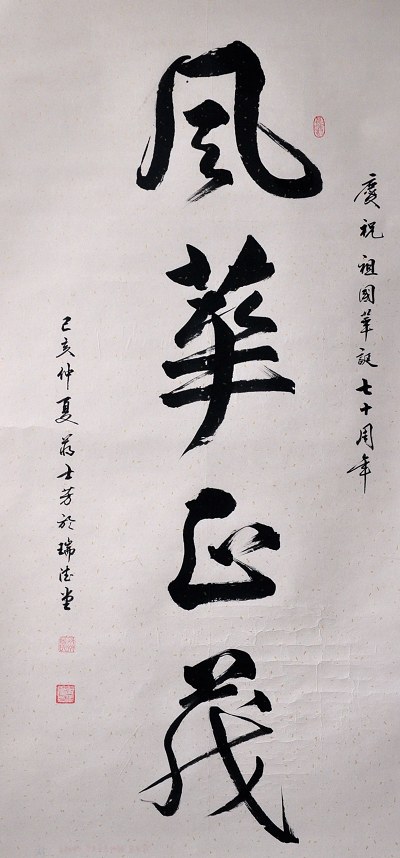 慶祝祖國華誕七十周年
風華正茂
己亥仲夏蔣士芳於瑞德堂